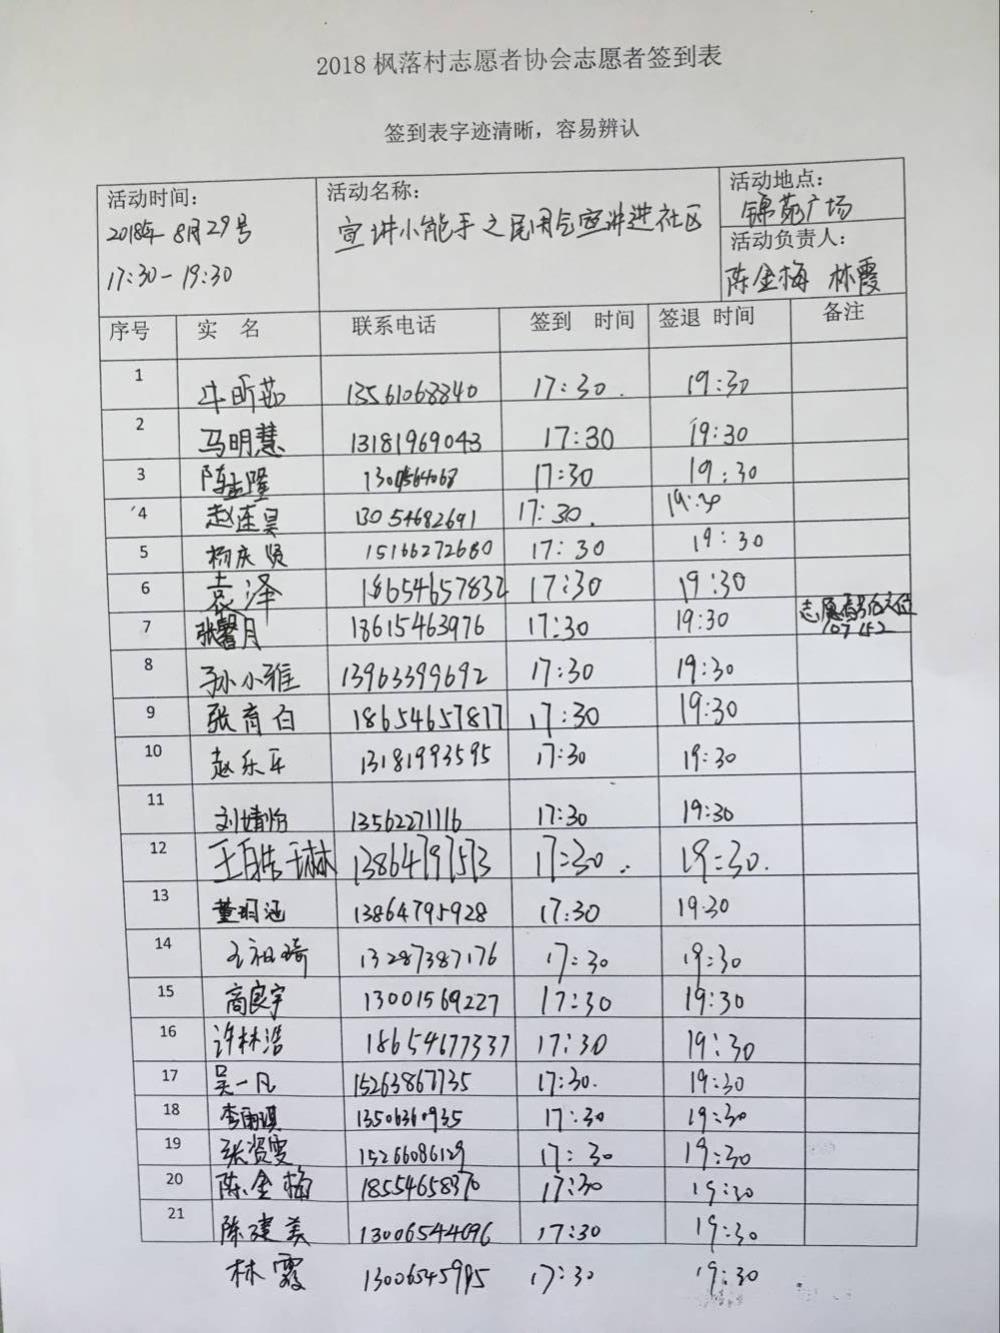 2018 枫落村志愿者协会志愿者签到表
签到表字迹清晰，容易辨认
活动时间：
2018年8月29号
17:30-19:30
活动名称：
宣讲小能手之民用气宣讲进社区
活动地点：
锦苑广场
活动负责人：
陈金梅 林霞
序号 实 名 联系电话 签到 时间 签退 时间 备注
1 牛昕茹 13561068840 17:30 19:30
2 马明慧 13181969043 17:30 19:30
3 17:30 19:30
4 赵连昊 13054682691 17:30
5 杨庆贤 15166272680 17:30 19:30
6 袁泽 18654657832 17:30 19:30
7 张馨月 18615463976 17:30 19:30
8 孙小雅 13963399692 17:30 19:30
9 张育白 18654657817 17:30 19:30
10 赵乐平 13181993595 17:30 19:30
11 刘婧怡 13562271116 17:30 19:30
12 13864797573 17:30 19:30
13 董玥涵 13864795928 17:30 19:30
14 王祖琦 13287387176 17:30 19:30
15 高良宇 13001569227 17:30 19:30
16 许林浩 18654677337 17:30 19:30
17 吴一凡 15263867735 17:30 19:30
18 李雨琪 13506360935 17:30 19:30
19 张资雯 15266086129 17:30 19:30
20 陈金梅 18554658370 17:30 19:30
21 陈建美 13006544096 17:30 19:30
林霞 13006545995 17:30 19:30